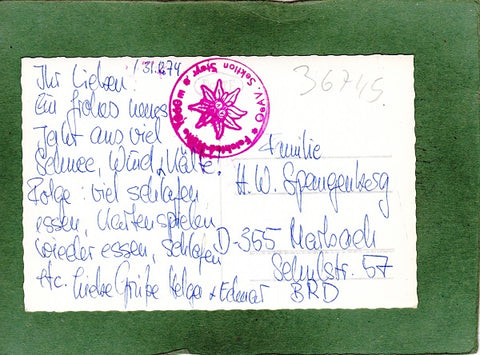 Ihr Lieben! 31.12.74
Ein frohes neues
Jahr aus viel
Schnee, Wind, Kälte!
Folge: viel schlafen
essen, Kartenspielen
wieder essen, schlafen
etc. Liebe Grüße Helga + Edmar
36745
ÖAV. Sektion Steyr
Familie
H. W. Spangenberg
D-355 Marbach
Schulstr. 57
BRD